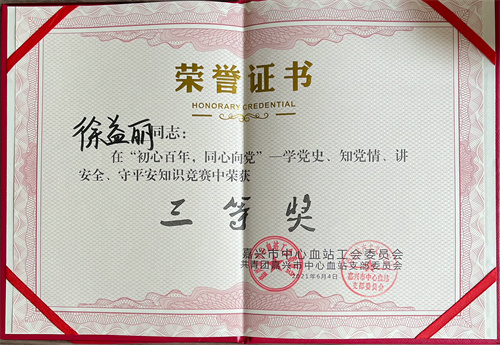 荣誉证书
HONORARY CREDENTIAL
徐益丽同志：
在“初心百年，同心向党”—学党史、知党情、讲
安全、守平安知识竞赛中荣获
三等奖
嘉兴市中心血站工会委员会
共青团嘉兴市中心血站支部委员会
2021年6月4日
嘉兴市中心血站
支部委员会